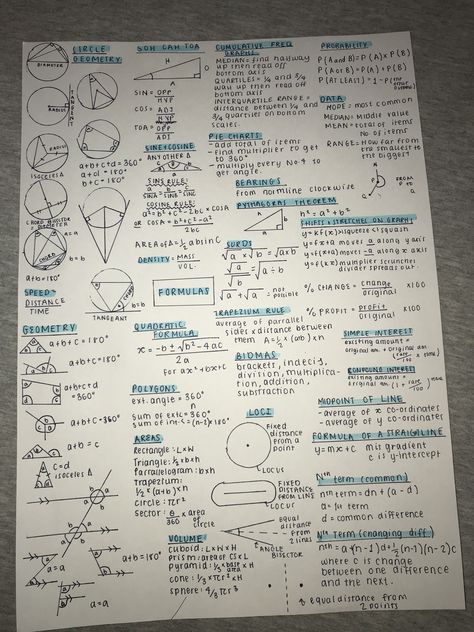 CIRCLE
GEOMETRY
DIAMETER
RADIUS
TANGENT
RADIUS
ISOCELES Δ
a+b+c+d = 360°
a+d = 180°
b+c = 180°
CHORD
a = a
b = b
a+b = 90°
b = b
TANGEANT
SPEED =
DISTANCE
TIME
GEOMETRY
a+b+c = 180°
a+b = 180°
a+b+c+d
= 360°
a+b+c = 360°
a+b = c
c = d
isoceles Δ
a+b = 180°
a = a
SOH CAH TOA
H
O
A
SIN = OPP
HYP
COS = ADJ
HYP
TOA = OPP
ADJ
SINE + COSINE
ANY OTHER Δ
SINE RULE:
COSINE RULE:
a² = b² + c² - 2bc × cos A
or COSA = b² + c² - a²
2bc
AREA OF Δ = ½ ab sin C
DENSITY = MASS
VOL.
FORMULAS
QUADRATIC
FORMULA
x = -b ± √b² - 4ac
2a
for ax² + bx + c
POLYGONS
ext. angle = 360°
n
sum of ext = 360°
sum of int = (n-2) × 180°
AREAS
Rectangle: L×W
Triangle: ½ b×h
Parallelogram: b×h
Trapezium:
½ × (a+b) × h
circle: πr²
sector: θ/360 × area of circle
VOLUME
cuboid: L×W×H
prism: area of CS×L
pyramid: ⅓ × base area × h
cone: ⅓ × πr² × h
sphere: 4/3 πr³
CUMULATIVE FREQ
GRAPHS
MEDIAN = find halfway
up then read off
bottom axis
QUARTILES = ¼ and ¾
way up then read off
bottom axis
INTERQUARTILE RANGE =
distance between ¼ and
¾ quartiles on bottom
scales.
PIE CHARTS
- add total of items
- Find multiplier to get
to 360°
- multiply every No. # to
get angle.
BEARINGS
from north line clockwise
PYTHAGORAS THEOREM
h² = a² + b²
SURDS
√a × √b = √a×b
√a/√b = √a÷b
√a + √a = not
possible
TRAPEZIUM RULE
average of parallel
sides × distance between
them A = ½ × (a+b) × h
BIDMAS
brackets, indecis,
division, multiplica-
tion, addition,
subtraction
LOCI
fixed
distance
from a
point
LOCUS
FIXED
DISTANCE
FROM LINE
LOCUS
equal
distance
from
2 lines
ANGLE
BISECTOR
equal distance from
2 points
PROBABILITY
P(A and B) = P(A) × P(B)
P(A or B) = P(A) + P(B)
DATA
MODE = most common
MEDIAN = Middle value
MEAN = total of items
No of items
RANGE = How far from
the smallest to
the biggest
FROM P
TO Q
SHIFTS + STRETCHES ON GRAPHS
y = f(x) + a moves a along y axis
y = f(x+a) moves -a along x axis
% CHANGE = change × 100
original
% PROFIT = profit × 100
original
SIMPLE INTEREST
COMPOUND INTEREST
MIDPOINT OF LINE
- average of x co-ordinates
- average of y co-ordinates
FORMULA OF A STRAIGHT LINE
y = mx + c m is gradient
c is y-intercept
Nth term (common)
nth term = dn + (a-d)
a = 1st term
d = common difference
Nth Term (changing diff.)
nth = a + (n-1)d + ½(n-1)(n-2)c
where c is change
between one difference
and the next.